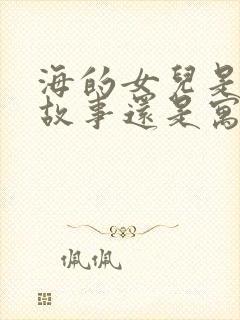 海的女兒是
故事還是寓
佩佩